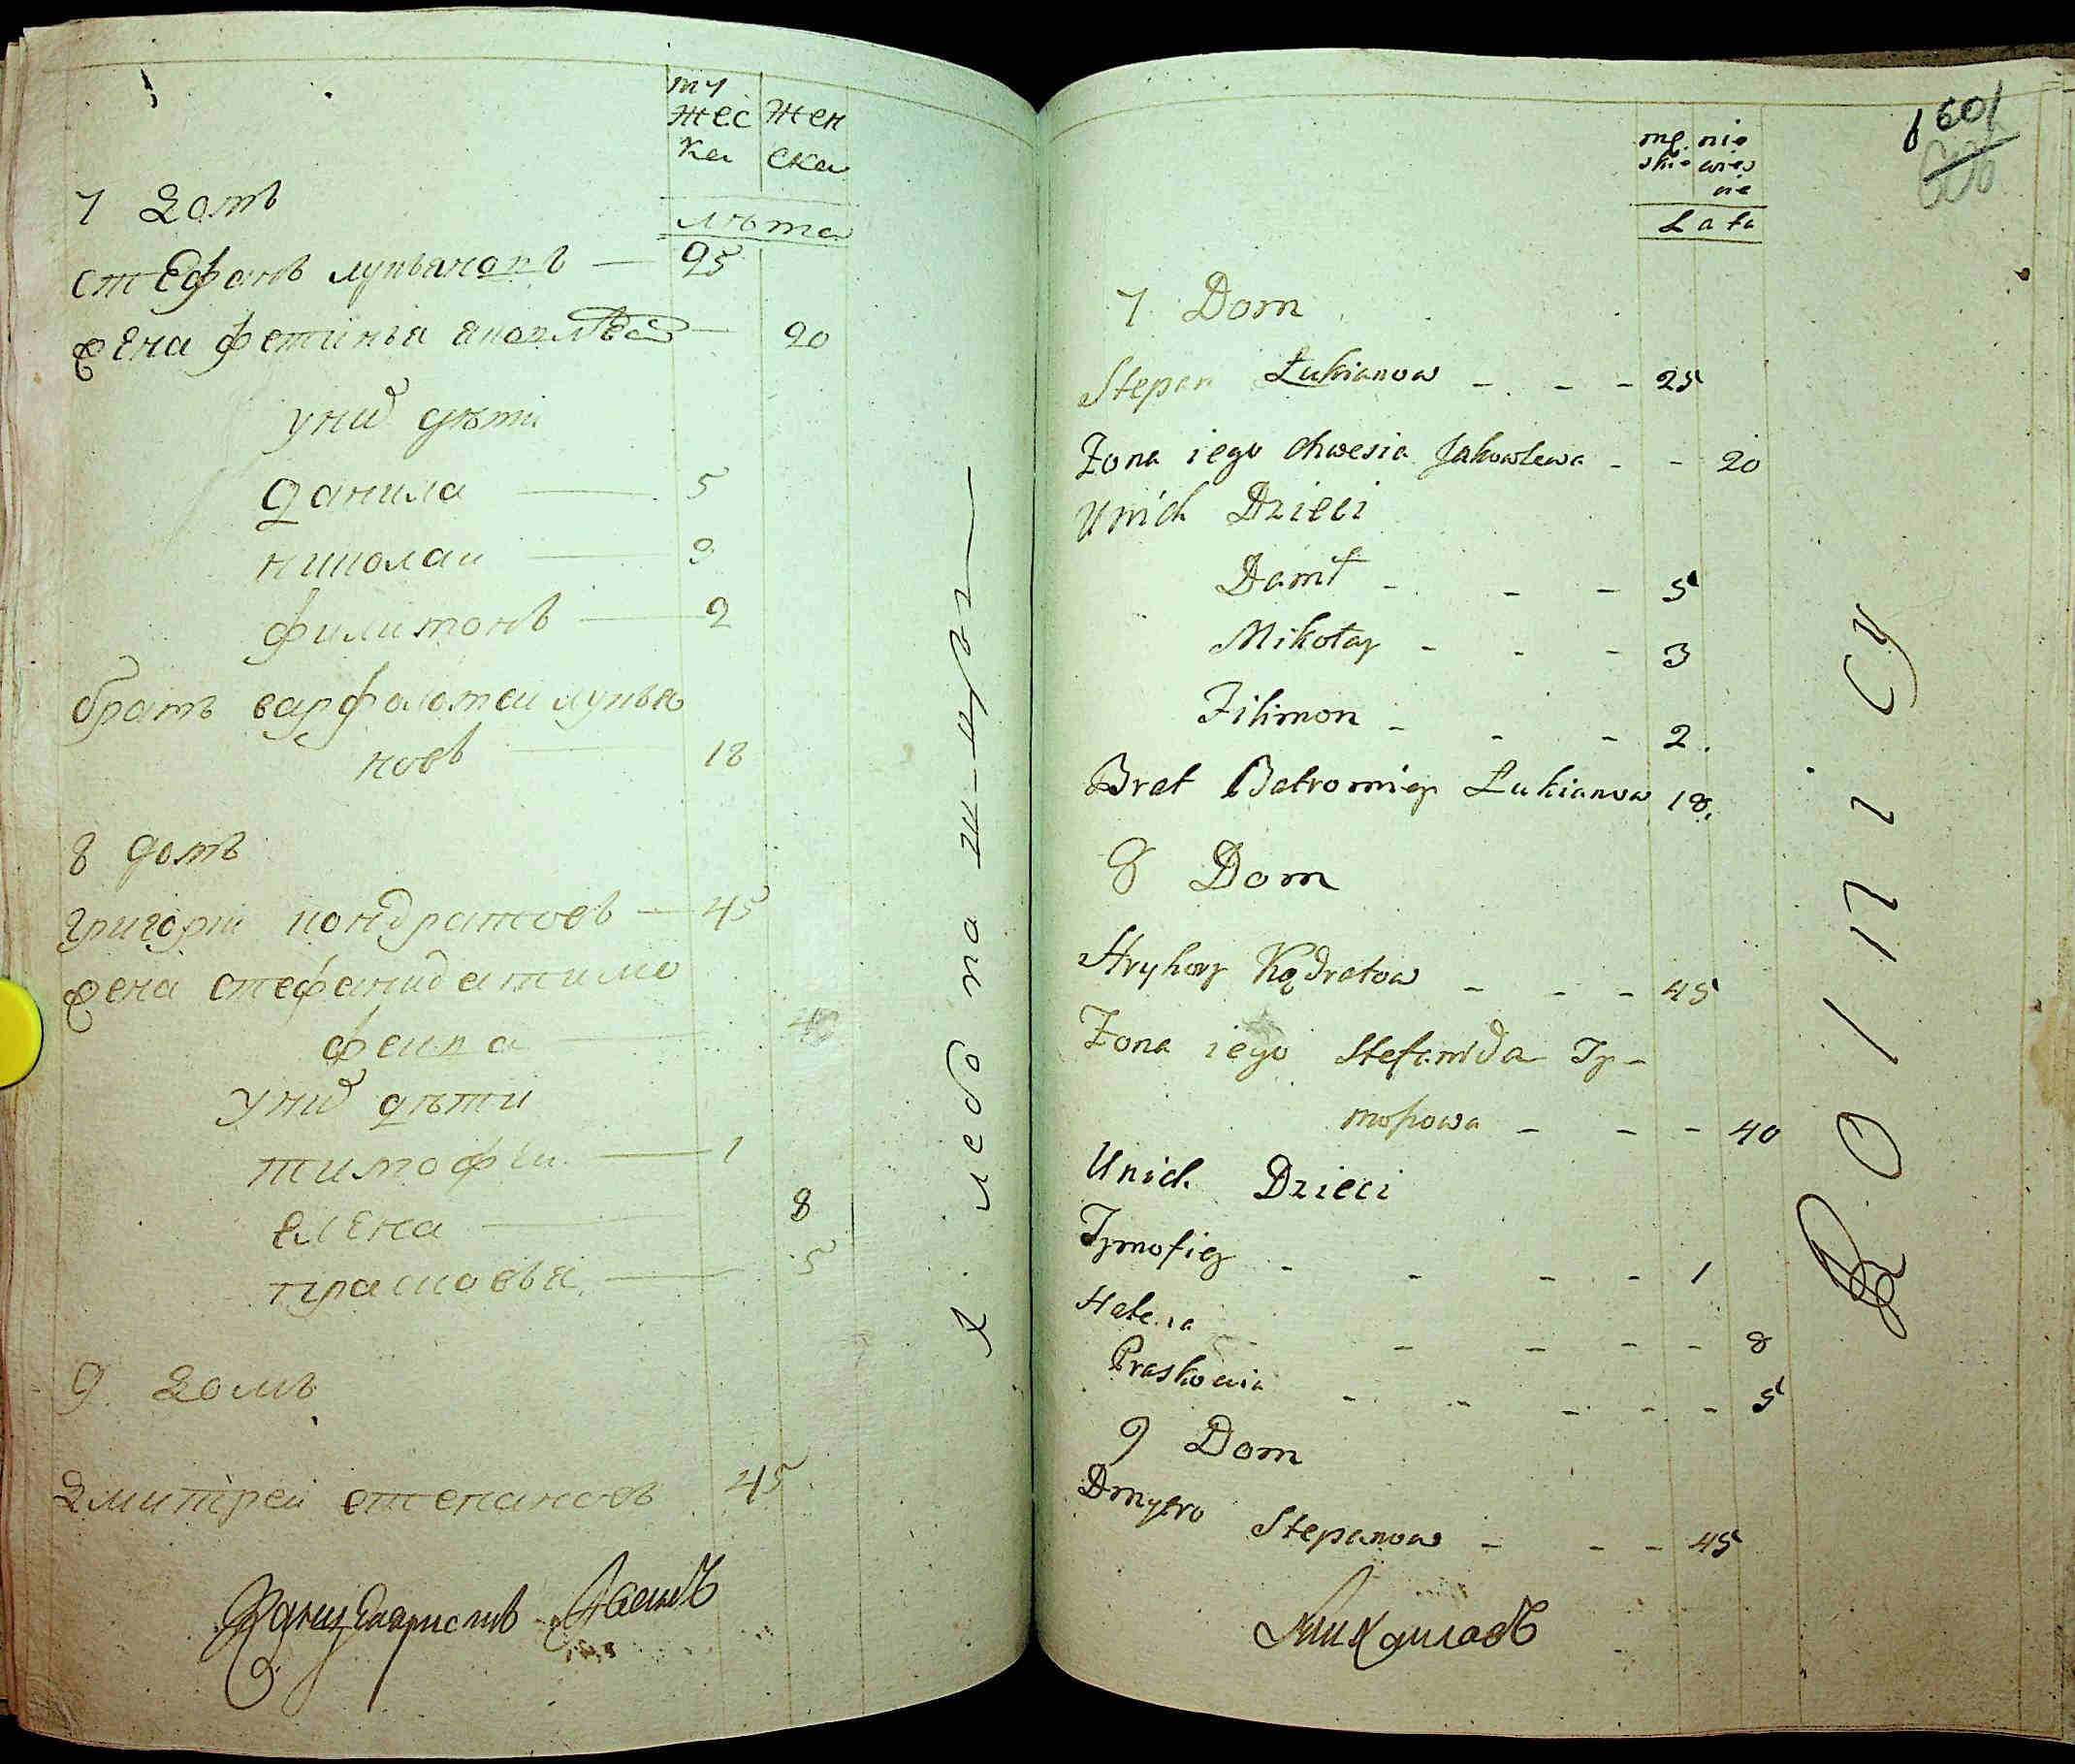 му
жес жен
ка ска
лѣта
7 Домъ
стефанъ лукьяновъ — 25
жена фетинья яковлева — 20
у них дѣти
данила — 5
николаи — 3
филимонъ — 2
братъ варфоломеи лукья
новъ — 18
8 домъ
григорiи кондратовъ — 45
жена стефанида тимо
феива — 40
у них дѣти
тимофѣи — 1
елена — 8
прасковья — 5
9 Домъ
Дмитреи степановъ 45
Канцеляристъ
хлебопа
mę nie
skie wieś
cie
Lata
7 Dom
Stepan Łukianow - - - 25
Żona iego Chwesia Jakowlewa - - 20
Unich Dzieci
Danił - - - 5
Mikołay - - - 3
Filimon - - - 2.
Brat Bałromiey Łukianow 18.
8 Dom
Hryhory Kądratow - - - 45
Żona iego Stefanida Ty-
mofiowa - - - 40
Unich Dzieci
Tymofiey - - - - 1
Halena - - - - - 8
Praskowia - - - - - 5
9 Dom
Dmytro Stepanow - - - 45
Михаиловъ
601